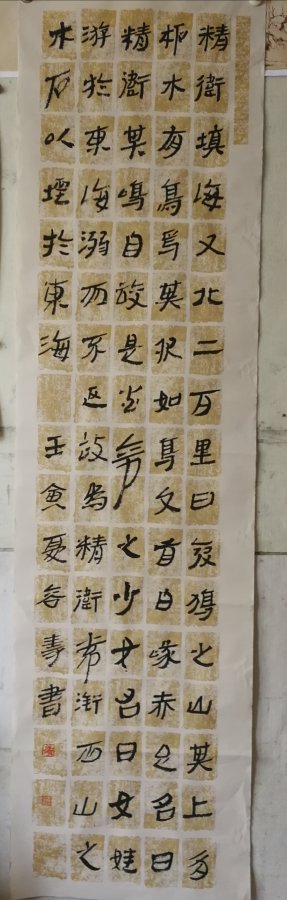 精衛填海又北二百里曰發鳩之山其上多
柘木有鳥焉其狀如烏文首白喙赤足名曰
精衛其鳴自詨是炎帝之少女名曰女娃
游於東海溺而不返故為精衛常銜西山之
木石以堙於東海 壬寅夏壽書